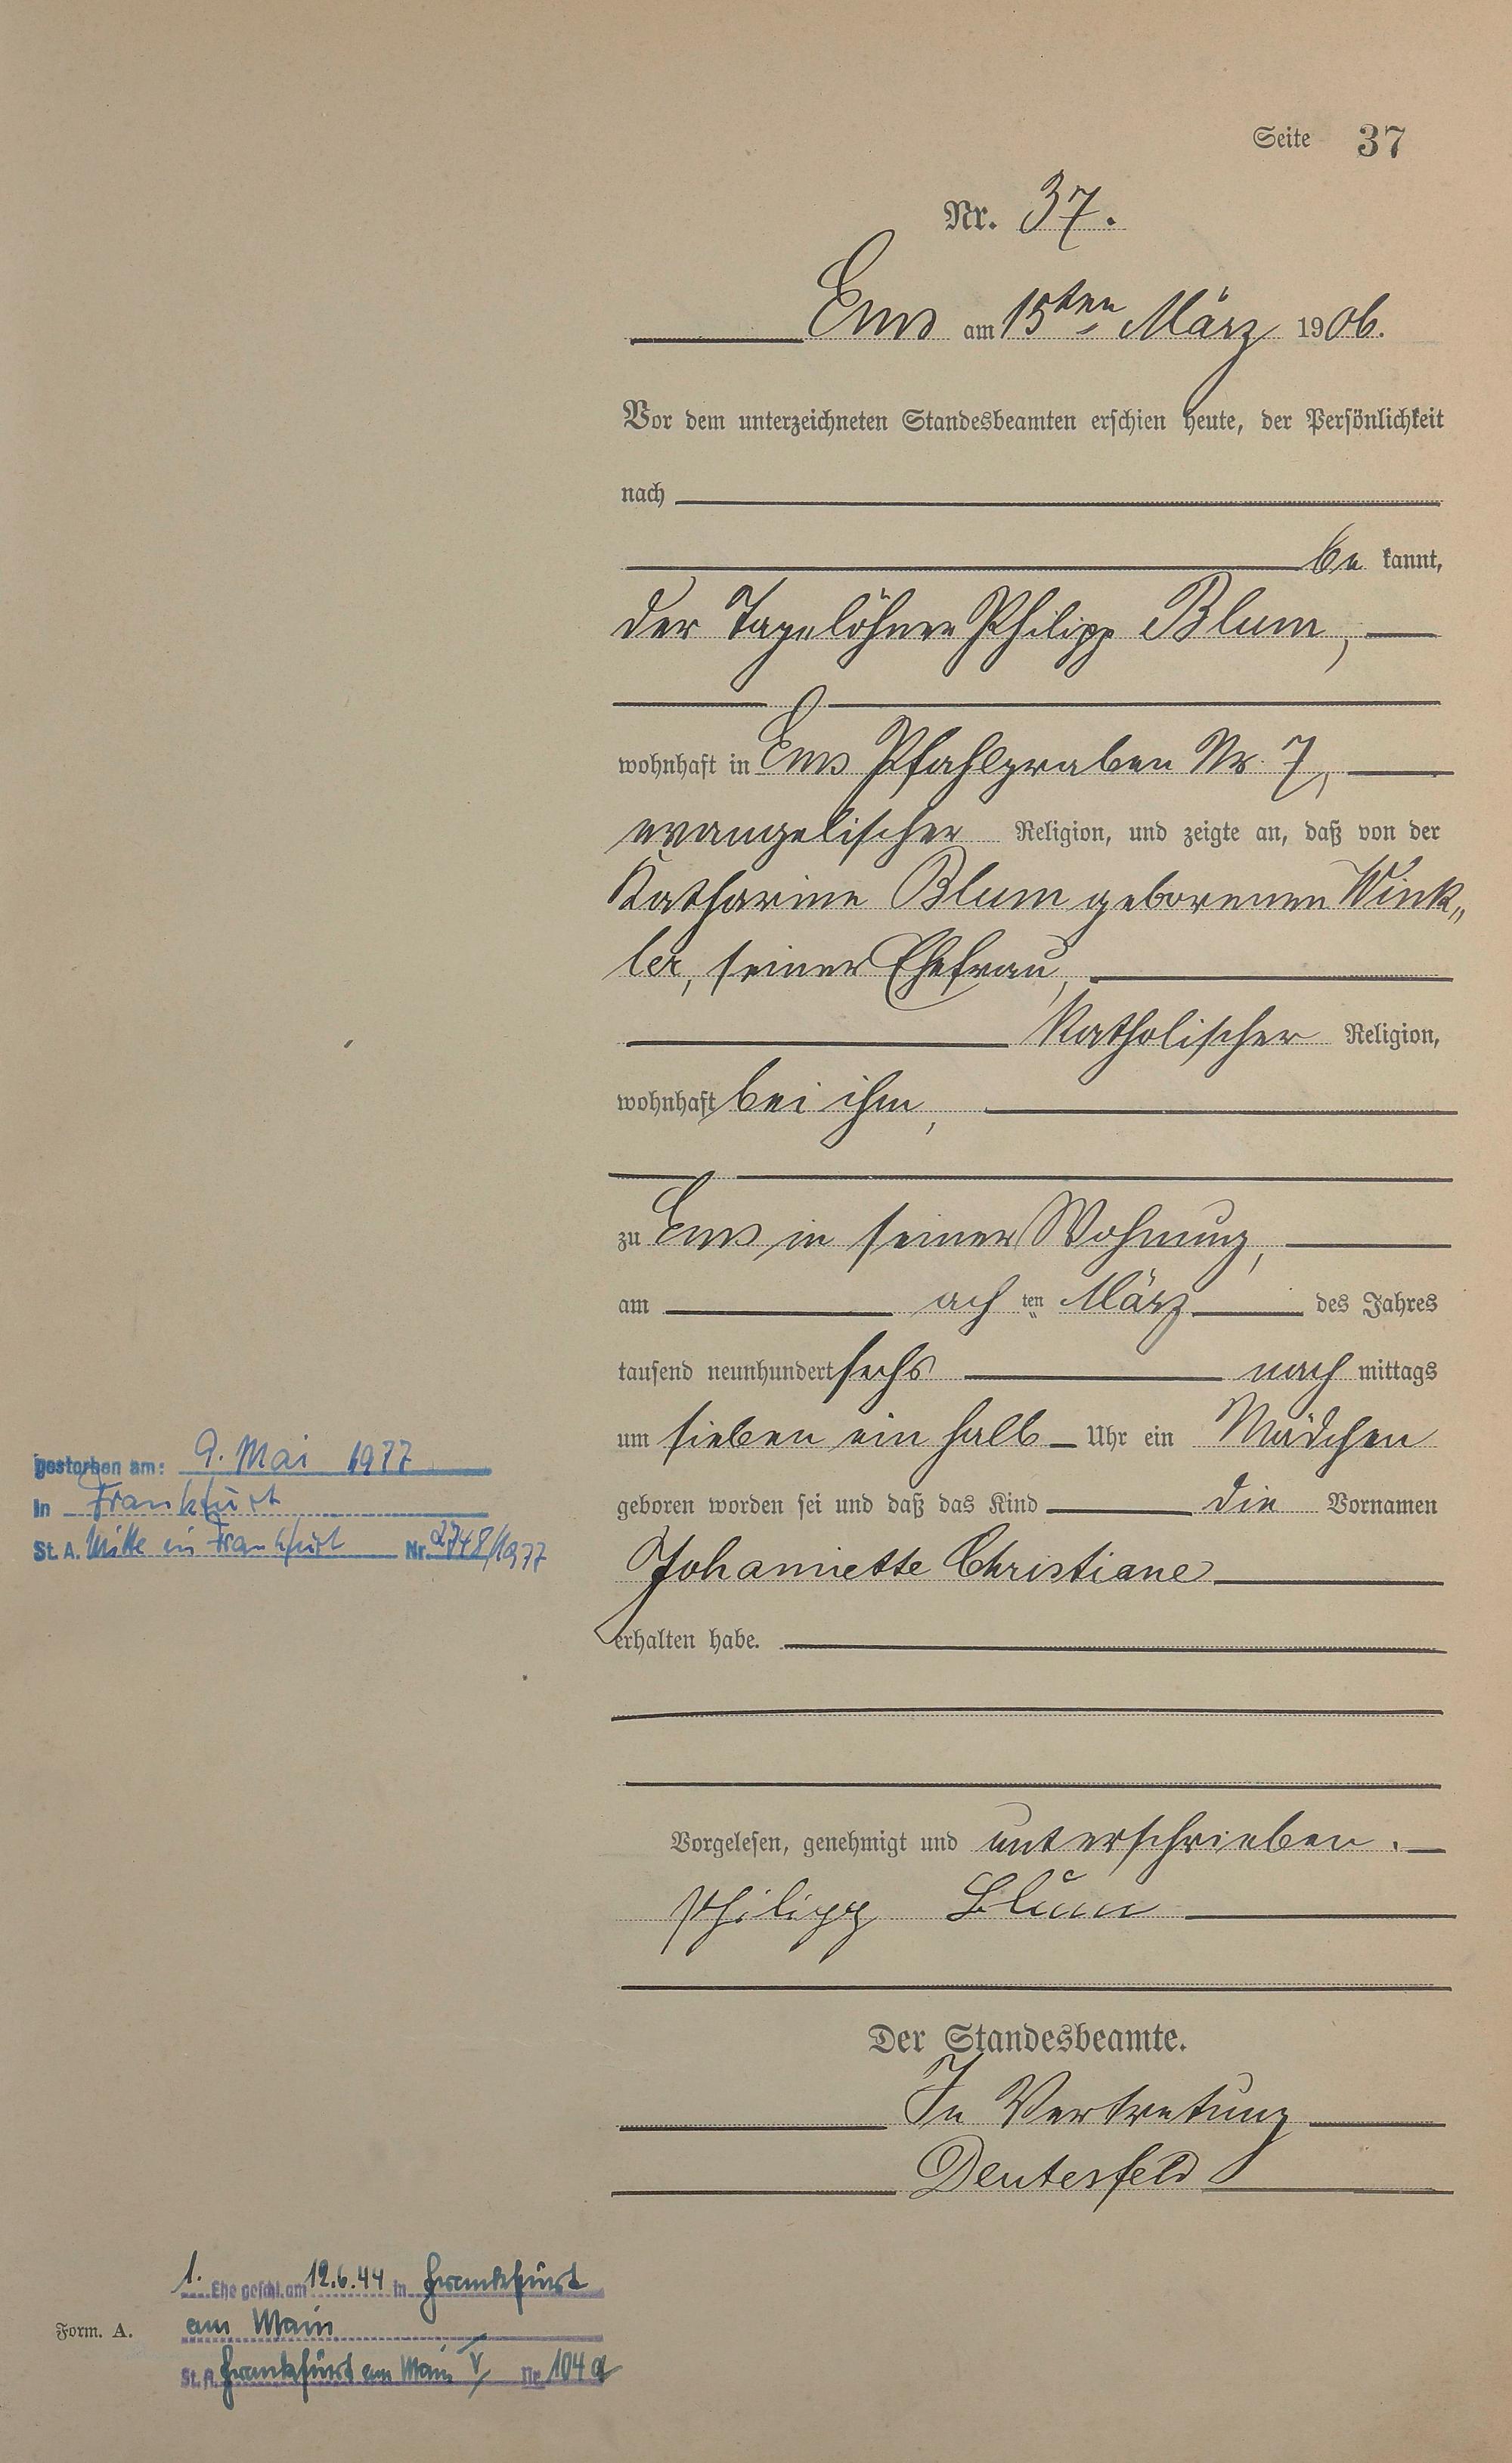 Seite 37
Nr. 37.
Ems am 15ten März 1906.
Vor dem unterzeichneten Standesbeamten erschien heute, der Persönlichkeit
nach
be kannt,
der Tagelöhner Philipp Blum,
wohnhaft in Ems Pfahlgraben Nr. 7,
evangelischer Religion, und zeigte an, daß von der
Katharine Blum geborenen Wink„
ler, seiner Ehefrau,
katholischer Religion,
wohnhaft bei ihm,
zu Ems in seiner Wohnung,
am ach ten März des Jahres
tausend neunhundert sechs nach mittags
um sieben ein halb Uhr ein Mädchen
geboren worden sei und daß das Kind die Vornamen
Johannette Christiane
erhalten habe.
Vorgelesen, genehmigt und unterschrieben.
Philipp Blum
Der Standesbeamte.
In Vertretung
Deutesfeld
gestorben am: 9. Mai 1977
in Frankfurt
St. A. Mitte in Frankfurt Nr. 2748/1977
1. Ehe geschl. am 12.6.44 in Frankfurt
am Main
St. A. Frankfurt am Main V Nr.
Form. A.